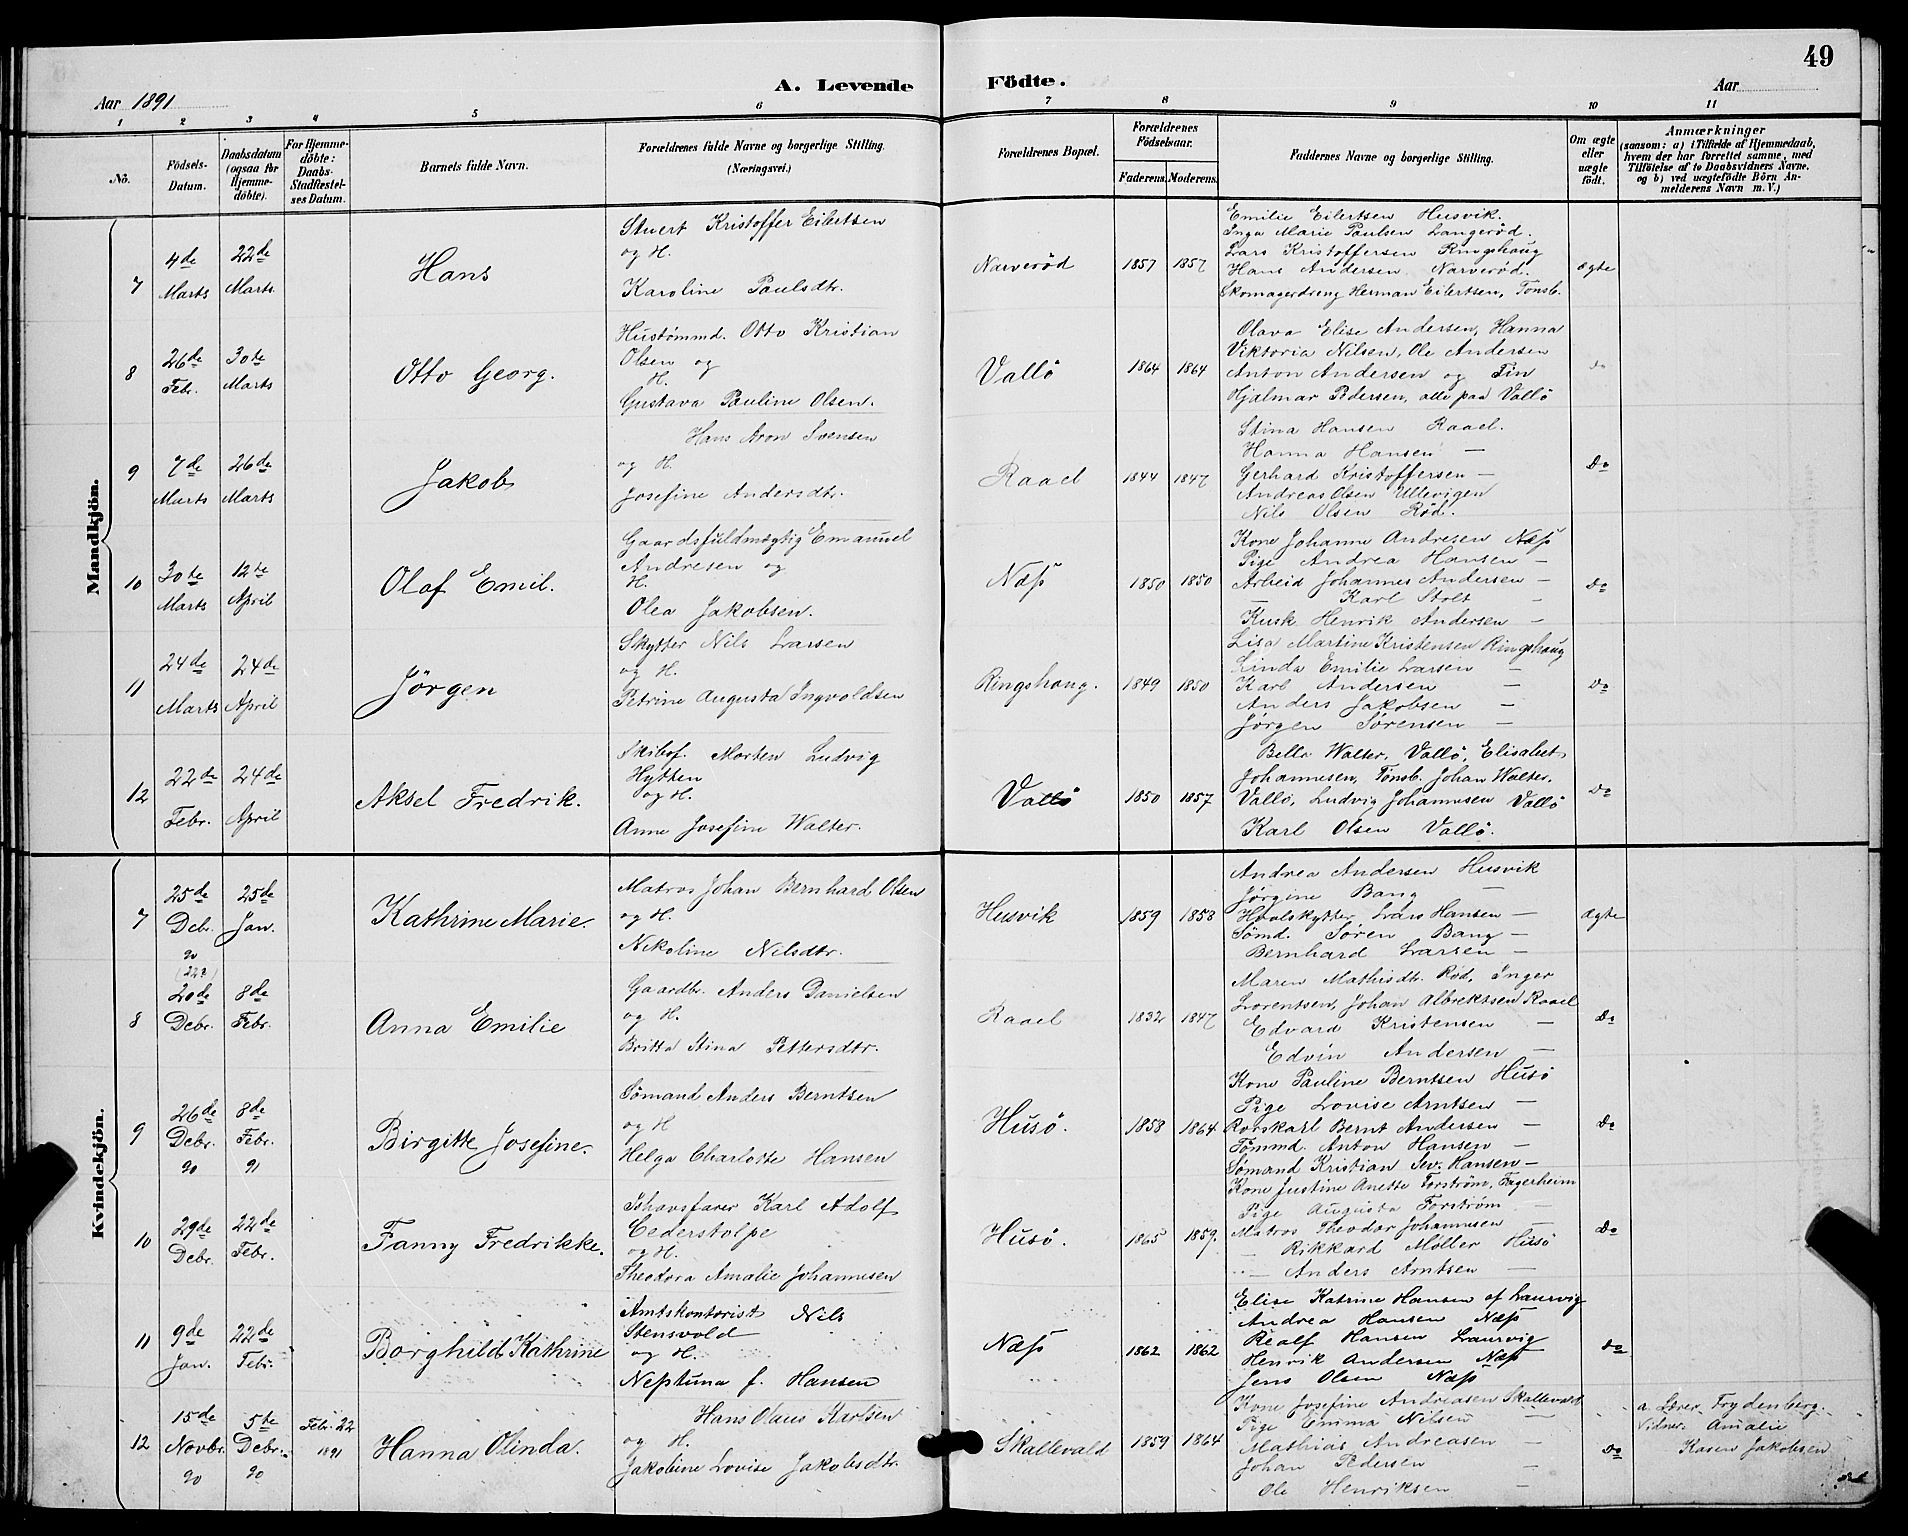 49
A. Levende Födte.
Aar 1891
Aar
1 2 3 4 5 6 7 8 9 10 11
No.
Födsels-Datum.
Daabsdatum (ogsaa for Hjemmedöbte).
For Hjemmedöbte: Daabs-Stadfæstelses Datum.
Barnets fulde Navn.
Forældrenes fulde Navne og borgerlige Stilling. (Næringsvei.)
Forældrenes Bopæl.
Forældrenes Födselsaar.
Faderens. Moderens.
Faddernes Navne og borgerlige Stilling.
Om ægte eller uægte födt.
Anmærkninger
(saasom: a) i Tilfælde af Hjemmedaab, hvem der har forrettet samme, med Tilföielse af to Daabsvidners Navne. og b) ved uægtefödte Börn Anmelderens Navn m. V.)
Mandkjön.
7
4de Marts
22de Marts
Hans
Stuert Kristoffer Eilertsen
og H.
Karoline Paulsdtr.
Narverød
1857 1857
Emilie Eilertsen Husvik.
Inga Marie Paulsen Langerød.
Lars Kristoffersen Ringshaug
Hans Andersen Narverød.
Skomagerdreng Herman Eilertsen, Tønsb.
ægte
8
26de Febr.
30te Marts
Otto Georg.
Hustømmd. Otto Kristian
Olsen og
H.
Gustava Pauline Olsen.
Vallö
1864 1864
Olava Elise Andersen, Hanna
Viktoria Nilsen, Ole Andersen
Anton Andersen og Fin
Hjalmar Pedersen, alle paa Vallö
do
9
7de Marts
26de Marts
Jakob
Hans Aron Svensen
og H.
Josefine Andersdtr.
Raael
1844 1847
Stina Hansen Raael.
Hanna Hansen —
Gerhard Kristoffersen —
Andreas Olsen Ullevigen
Nils Olsen Rød.
Do
10
30te Marts
12te April
Olaf Emil.
Gaardsfuldmægtig Emanuel
Andresen og
H.
Olea Jakobsen.
Næss
1850 1850
Kone Johanne Andresen Næss
Pige Andrea Hansen —
Arbeid Johannes Andersen —
— Karl Stolt —
Kusk Henrik Andersen —
Do
11
24de Marts
24de April
Jörgen
Skytter Nils Larsen
og H.
Petrine Augusta Ingvoldsen
Ringshaug.
1849 1850
Lisa Martine Kristensen Ringshaug
Linda Emilie Larsen —
Karl Andersen —
Anders Jakobsen —
Jørgen Sørensen —
Do
12
22de Febr.
24de April
Aksel Fredrik.
Skibsf. Morten Ludvig
Hytten
og H.
Anne Josefine Walter.
Vallö
1850 1857
Bella Walter, Vallö, Elisabet
Johannesen, Tønsb. Johan Walter.
Vallö, Ludvig Johannesen Vallö
Karl Olsen Vallö.
Do
Kvindekjön.
7
25de Debr. 90
25de Jan.
Kathrine Marie.
Matros Johan Bernhard Olsen
og H.
Nikoline Nilsdtr.
Husvik
1859 1858
Andrea Andersen Husvik
Jørgine Bang —
Hvalskytter Lars Hansen —
Sømd. Søren Bang —
Bernhard Larsen —
Ægte
8
(22?)
20de Debr.
8de Febr.
Anna Emilie
Gaardbr. Anders Danielsen
og H.
Britta Stina Pettersdtr.
Raael
1832 1847
Maren Mathisdtr. Rød, Inger
Lorentsen, Johan Albrektsen Raael
Edvard Kristensen —
Edvin Andersen —
Do
9
26de Debr. 90
8de Febr. 91
Birgitte Josefine.
Sømand Anders Berntsen
og H
Helga Charlotte Hansen
Husö.
1858 1864
Kone Pauline Berntsen Husö
Pige Lovise Arntsen —
Rorskarl Bernt Andersen —
Tømmd. Anton Hansen —
Sømand Kristian Sev. Hansen —
Do
10
29de Debr.
22de Febr.
Fanny Fredrikke.
Ishavsfarer Karl Adolf
Cederstolpe
og H.
Theodora Amalie Johannesen
Husö.
1865 1859.
Kone Justine Anette Forström, Fagerheim
Pige Augusta Forström —
Matros Theodor Johannesen —
— Rikkard Möller Husö
— Anders Arntsen —
Do
11
9de Jan.
22de Febr.
Borghild Kathrine
Amtskontorist Nils
Stensvold
og H.
Neptuna f. Hansen
Næss
1862 1862
Elise Katrine Hansen af Laurvig
Andrea Hansen Næss
Realf Hansen Laurvig
Henrik Andersen Næss
Jens Olsen Næss
Do
12
15de Novbr. 90
5te Debr. 90
Febr. 22 1891
Hanna Olinda.
Hans Olaus Karlsen
og H.
Jakobine Lovise Jakobsdtr.
Skallevald
1859 1864
Kone Josefine Andreasen Skallevald
Pige Emma Nilsen —
Mathias Andreasen —
Johan Pedersen —
Ole Henriksen —
Do
a. Lærer Frydenberg.
Vidner. Amalie
Karen Jakobsen